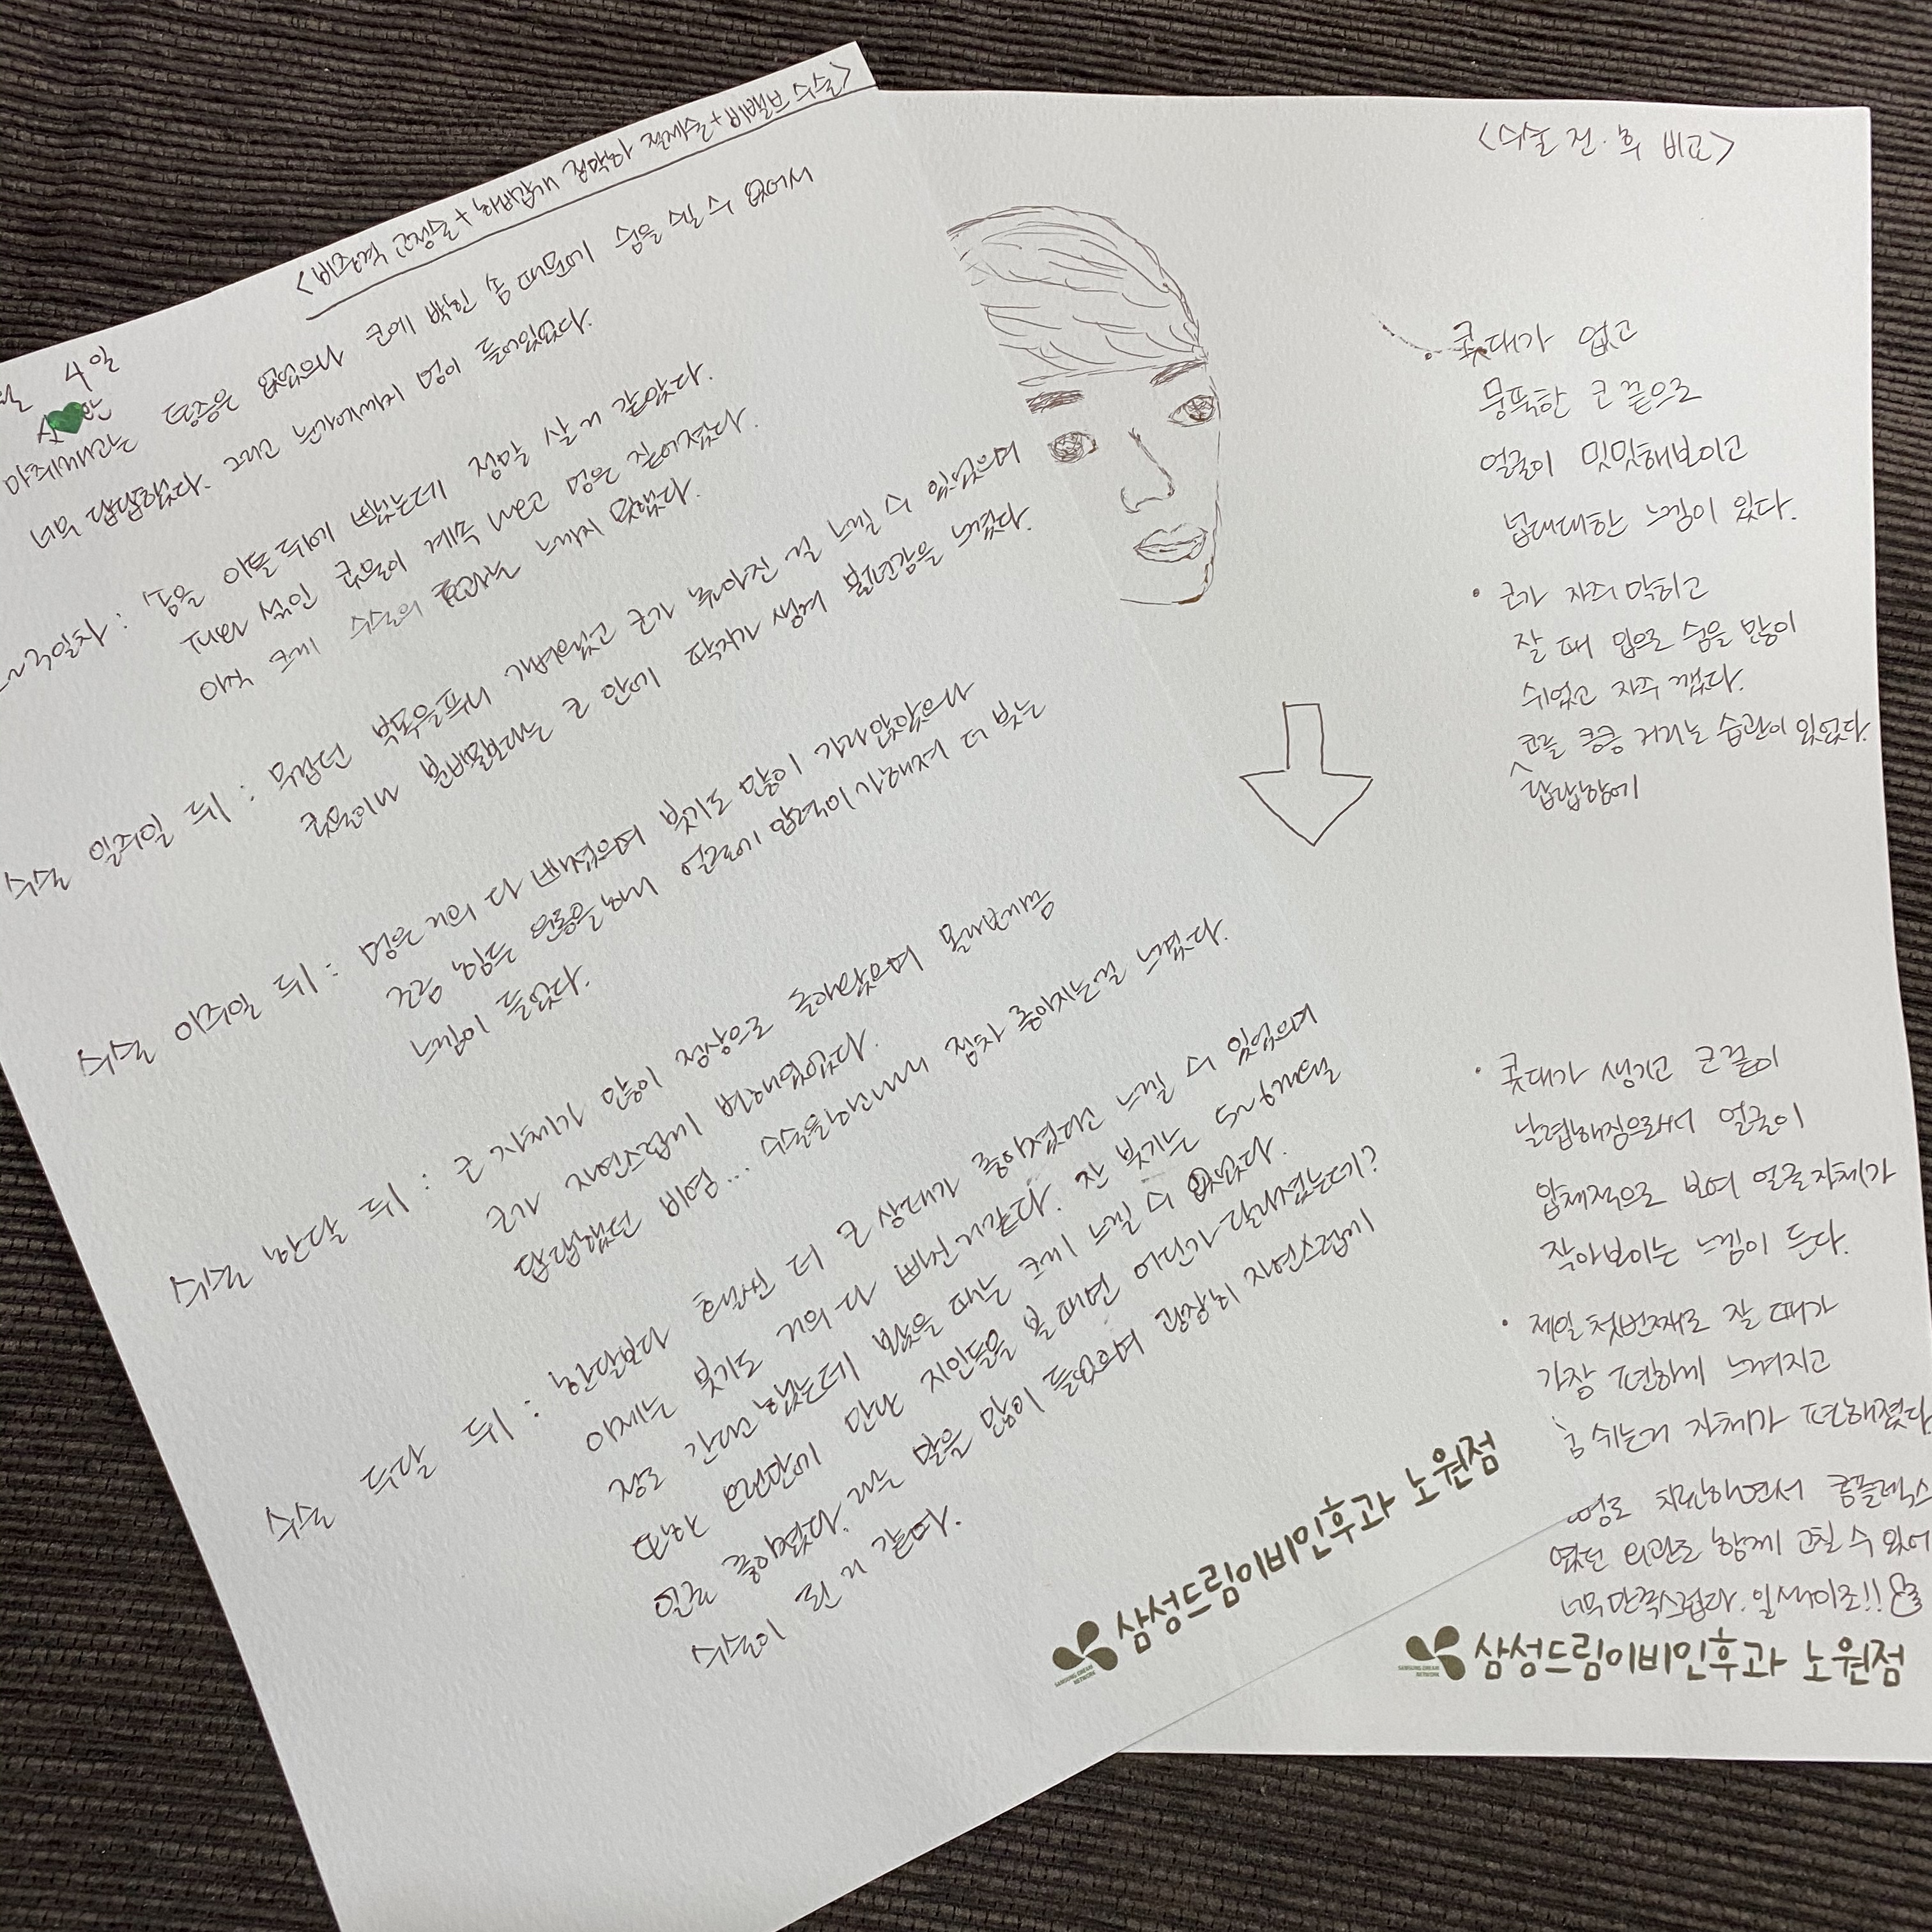 <비중격 교정술+하비갑개 점막하 절제술+비밸브 수술>
4일
마취깨고는 통증은 없었으나 코에 박힌 솜 때문에 숨을 쉴 수 없어서
너무 답답했다. 그리고 눈가에까지 멍이 들어있었다.
솜을 이틀 뒤에 뺐는데 정말 살 거 같았다.
피와 섞인 콧물이 계속 나오고 멍은 짙어졌다.
아직 크게 수술의 효과는 느끼지 못했다.
수술 일주일 뒤 : 부목을 개해졌고 코가 높아진 걸 느낄 수 있었으며
콧물이나 분비물보다는 코 안에 딱지가 생겨 불편감을 느꼈다.
수술 이주일 뒤 : 멍은 거의 다 빠졌으며 붓기도 많이 가라앉았으나
조금 힘든 운동을 하니 얼굴에 압력이 가해져 더 붓는
느낌이 들었다.
수술 한달 뒤 : 코 자체가 많이 정상으로 돌아왔으며 몰라보게끔
코가 자연스럽게 변해있었다.
답답했던 비염... 수술을하고나니 점차 좋아지는걸 느꼈다.
수술 두달 뒤 : 한달보다 훨씬 더 코 상태가 좋아졌다고 느낄 수 있었으며
이제는 붓기도 거의 다 빠진 거같다. 잔 붓기는 5~6개월
정도 간다고 했는데 봤을 때는 크게 느낄 수 없었다.
또한 오랜만에 만난 지인들을 볼 때면 어딘가 달라졌는데?
인물 좋아졌다. 라는 말을 많이 들었으며 굉장히 자연스럽게
수술이 된 거 같다.
삼성드림이비인후과 노원점
SAMSUNG DREAM
NETWORK
<수술 전·후 비교>
· 콧대가 없고
뭉뚝한 코 끝으로
얼굴이 밋밋해보이고
넙대대한 느낌이 있다.
· 코가 자주 막히고
잘 때 입으로 숨을 많이
쉬었고 자주 깼다.
코를 킁킁 거리는 습관이 있었다.
답답함에
· 콧대가 생기고 코끝이
날렵해짐으로써 얼굴이
입체적으로 보여 얼굴자체가
작아보이는 느낌이 든다.
· 제일 첫번째로 잘 때가
가장 편하게 느껴지고
숨 쉬는거 자체가 편해졌다
염도 치료하면서 콤플렉스
였던 외관도 함께 고칠 수 있어
너무만족스럽다. 일석이조!!
삼성드림이비인후과 노원점
SAMSUNG DREAM
NETWORK